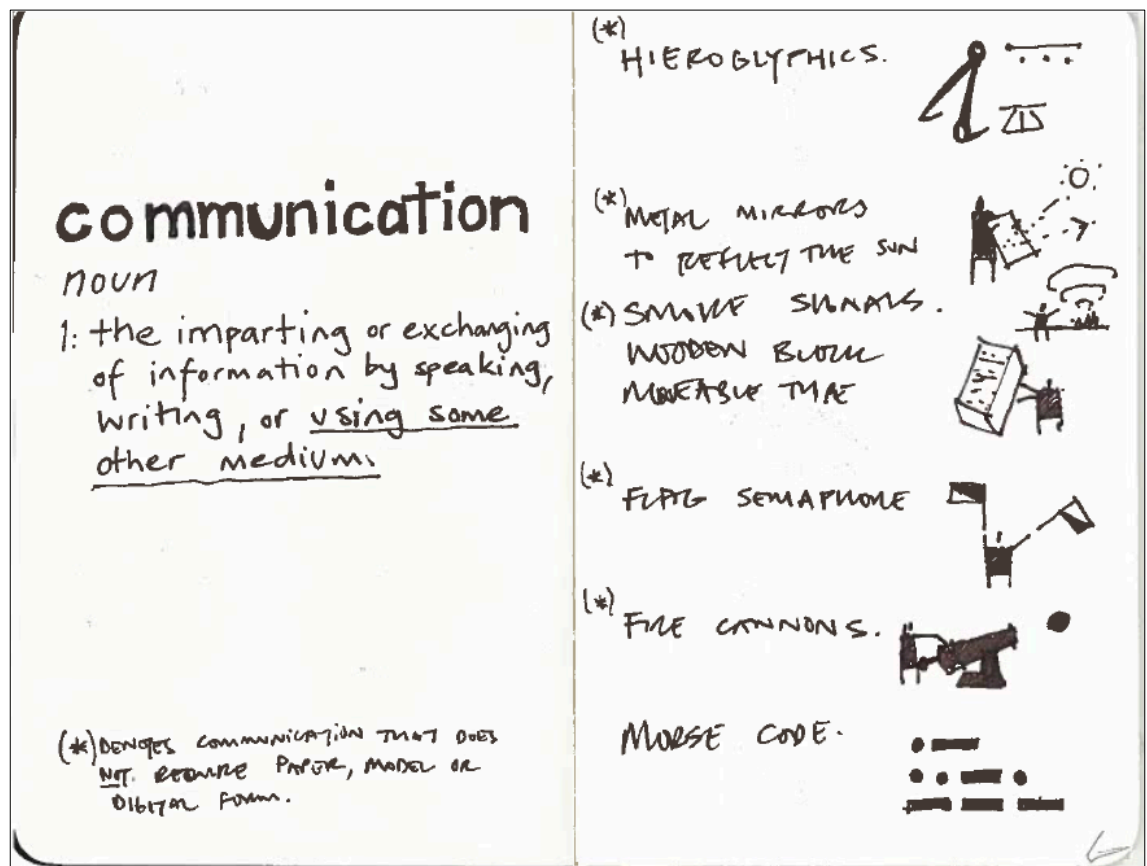 communication
noun
1: the imparting or exchanging
of information by speaking,
writing, or using some
other medium.
(*) DENOTES COMMUNICATION THAT DOES
NOT REQUIRE PAPER, MODEL OR
DIGITAL FORM.
(*) HIEROGLYPHICS.
(*) METAL MIRRORS
TO REFLECT THE SUN
(*) SMOKE SIGNALS.
WOODEN BLOCK
MOVEABLE TYPE
(*) FLAG SEMAPHORE
(*) FIRE CANNONS.
MORSE CODE.